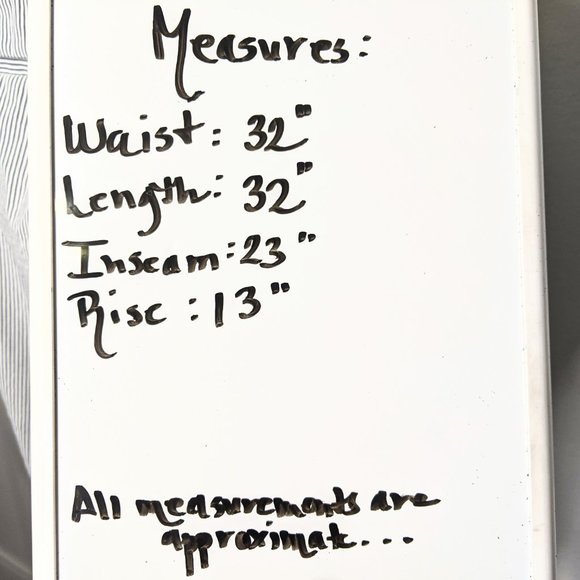 Measures:
Waist: 32"
Length: 32"
Inseam: 23"
Rise: 13"
All measurements are
approximate...